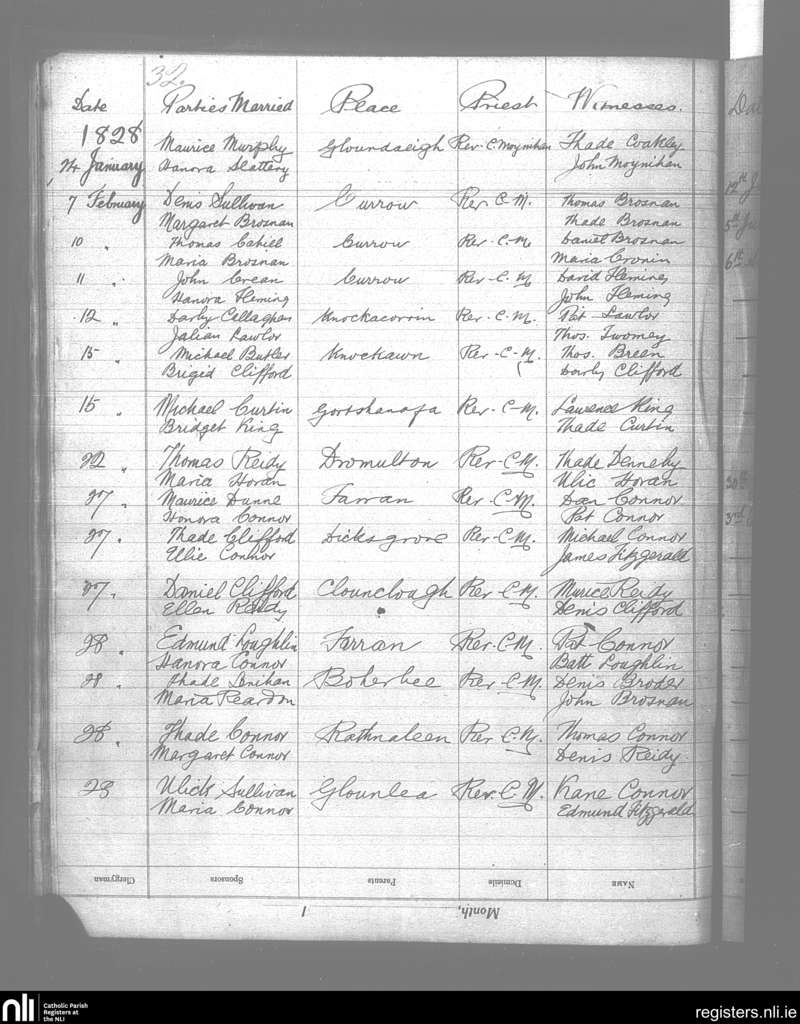 32.
Date Parties Married Place Priest Witnesses.
1828
24 January Maurice Murphy Gloundaeigh Rev. C. Moynihan Thade Coakley
Hanora Slattery John Moynihan
7 February Denis Sullivan Currow Rev C-M. Thomas Brosnan
Margaret Brosnan Thade Brosnan
10 " Thomas Cahill Currow Rev-C-M Daniel Brosnan
Maria Brosnan Maria Cronin
11 " John Crean Currow Rev-C.M David Fleming
Hanora Fleming John Fleming
12 " Darby Callaghan Knockacorrin Rev. C. M. Pat Lawlor
Julian Lawlor Thos. Twomey
15 " Michael Butler Knockawn Rev-C-M. Thos. Breen
Brigid Clifford Darby Clifford
15 " Michael Curtin Gortshanafa Rev. C-M. Laurence King
Bridget King Thade Curtin
22 " Thomas Reidy Dromulton Rev-C-M. Thade Dennehy
Maria Horan Ulic Horan
27 " Maurice Dunne Farran Rev-C-M. Dan Connor
Honora Connor Pat Connor
27 " Thade Clifford Dicksgrove Rev-C-M. Michael Connor
Ellie Connor James Fitzgerald
27 " Daniel Clifford Clounclough Rev-C-M. Murice Reidy
Ellen Reidy Denis Clifford
28 " Edmund Loughlin Farran Rev. C. M. Pat Connor
Hanora Connor Batt Loughlin
28 " Thade Lenihan Boherbee Rev-C-M. Denis Broder
Maria Reardon John Brosnan
28 " Thade Connor Rathnaleen Rev C. M. Thomas Connor
Margaret Connor Denis Reidy.
28 Ulick Sullivan Glounlea Rev. C. M. Kane Connor
Maria Connor Edmund Fitzgerald
Clergyman Sponsors Parents Domicile Name
1 Month,
nli Catholic Parish
Registers at
the NLI
registers.nli.ie